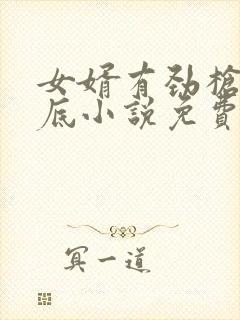 女婿有劲枪
底小说免费
冥一道